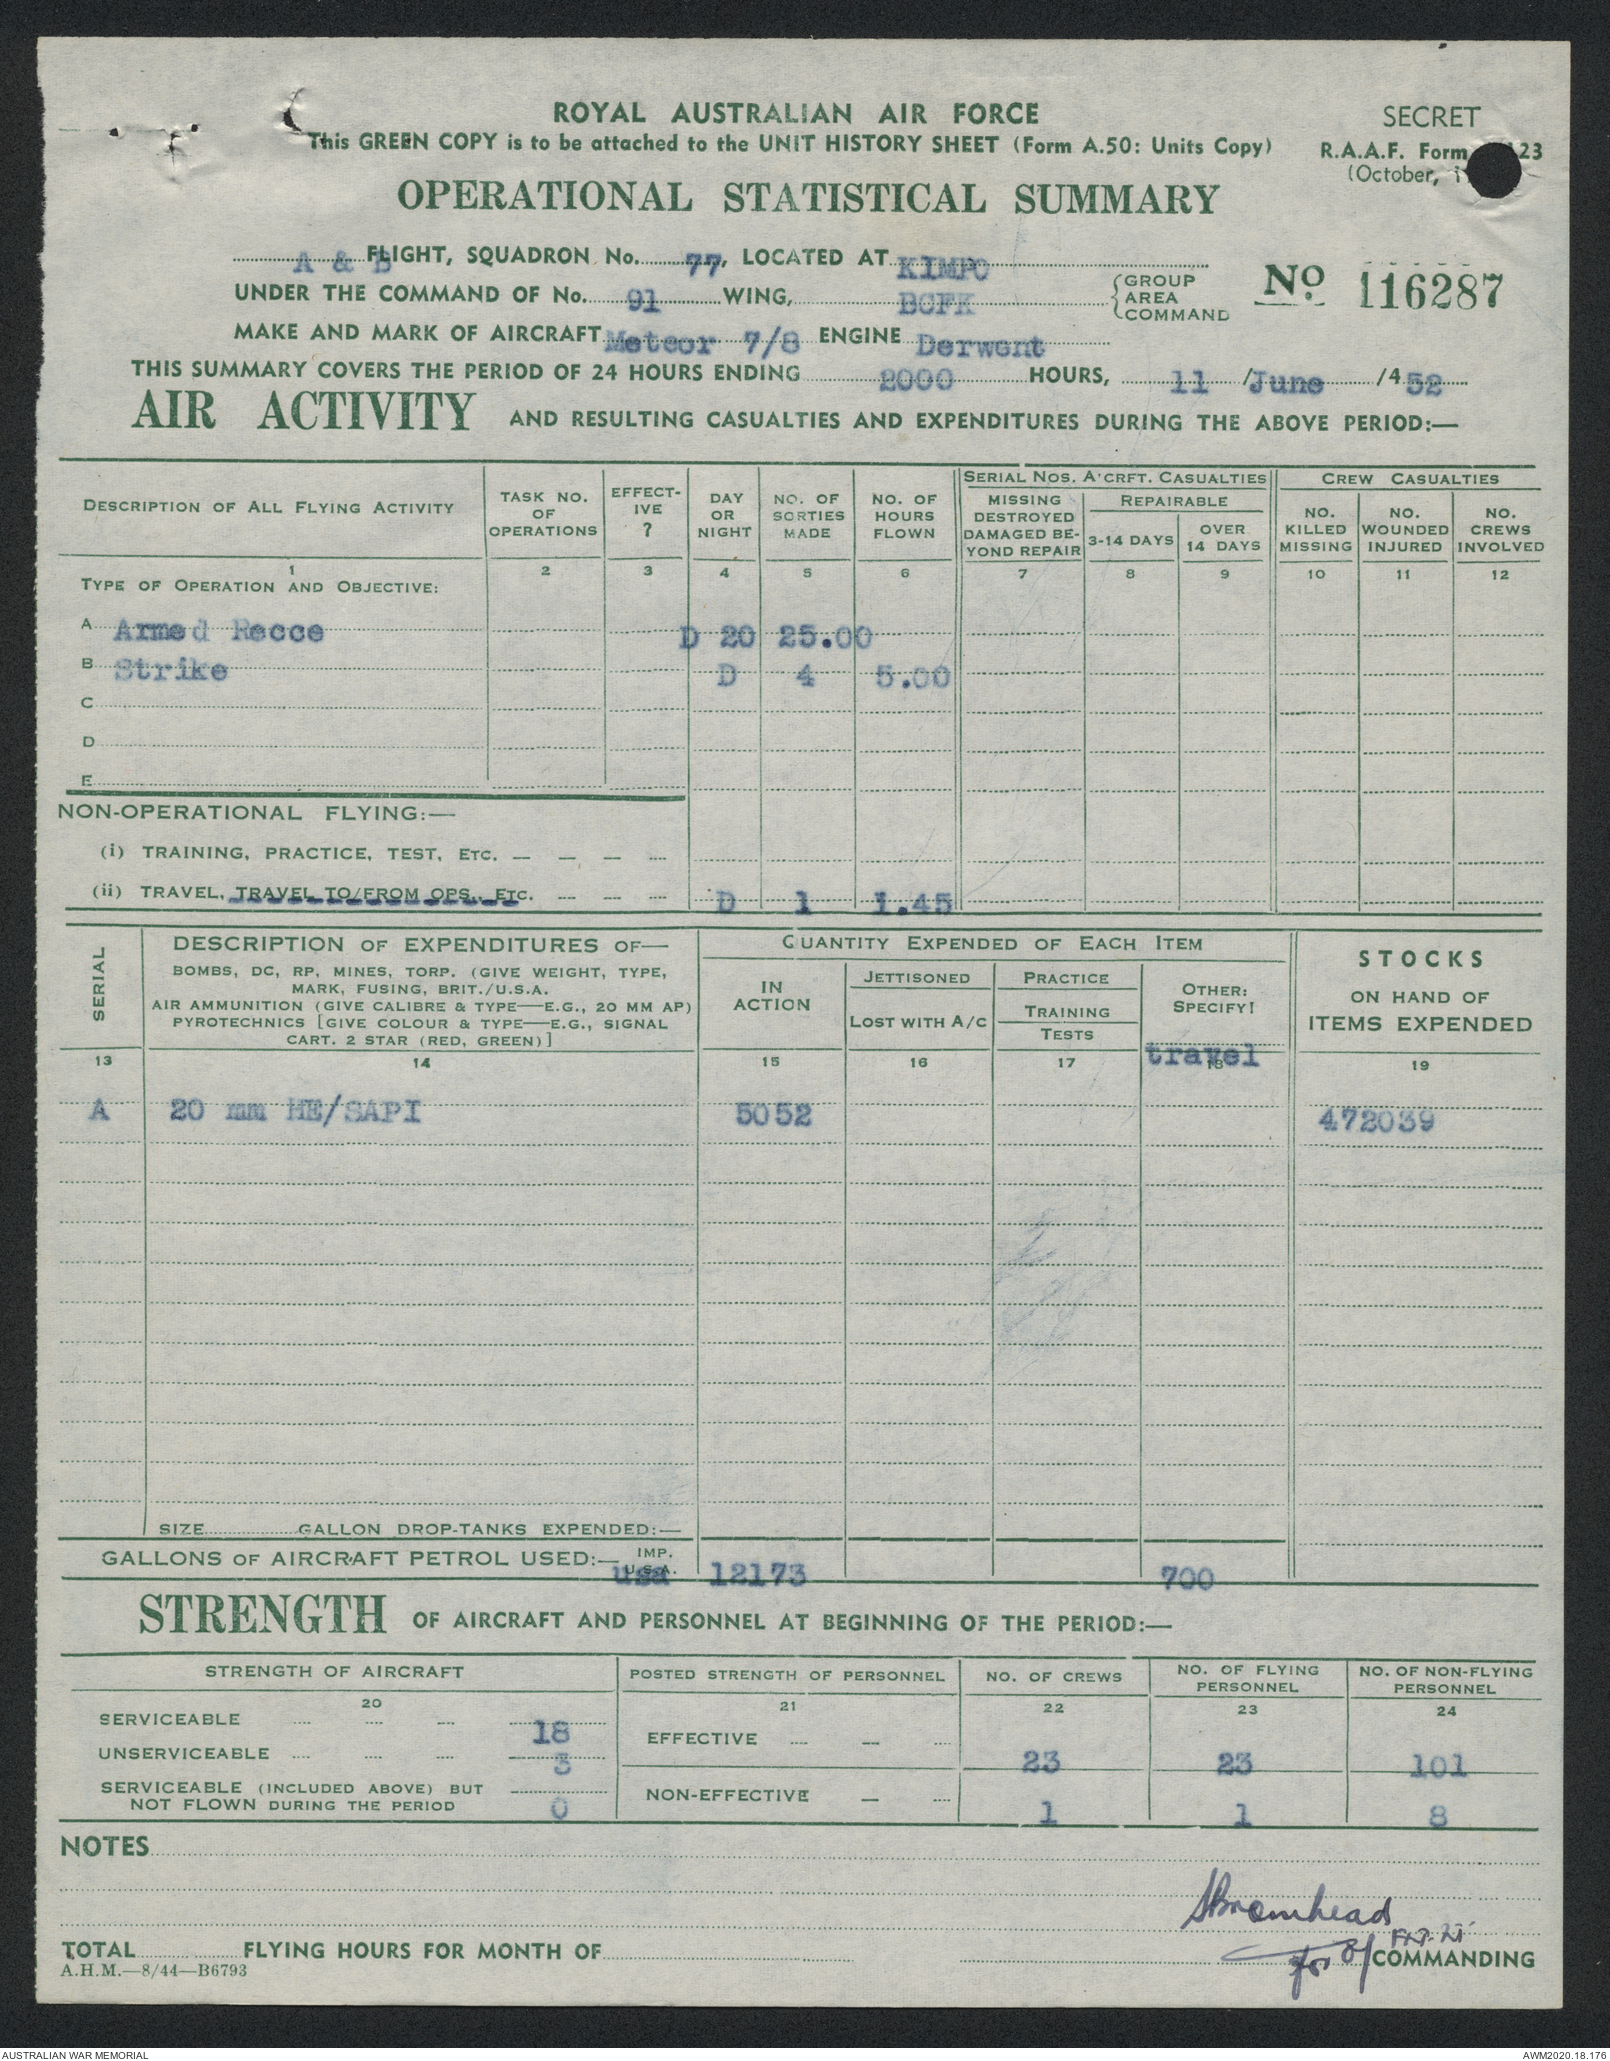 ROYAL AUSTRALIAN AIR FORCE
SECRET
This GREEN COPY is to be attached to the UNIT HISTORY SHEET (Form A.50: Units Copy)
R.A.A.F. Form 23
(October,
OPERATIONAL STATISTICAL SUMMARY
A & B FLIGHT, SQUADRON No. 77, LOCATED AT KIMPO
UNDER THE COMMAND OF No. 91 WING, BCFK {GROUP AREA COMMAND
No 116287
MAKE AND MARK OF AIRCRAFT Meteor 7/8 ENGINE Derwent
THIS SUMMARY COVERS THE PERIOD OF 24 HOURS ENDING 2000 HOURS, 11 /June /4 52
AIR ACTIVITY AND RESULTING CASUALTIES AND EXPENDITURES DURING THE ABOVE PERIOD:—
DESCRIPTION OF ALL FLYING ACTIVITY
TASK NO. OF OPERATIONS
EFFECT-IVE ?
DAY OR NIGHT
NO. OF SORTIES MADE
NO. OF HOURS FLOWN
SERIAL NOS. A'CRFT. CASUALTIES
MISSING DESTROYED DAMAGED BE-YOND REPAIR
REPAIRABLE
3-14 DAYS
OVER 14 DAYS
CREW CASUALTIES
NO. KILLED MISSING
NO. WOUNDED INJURED
NO. CREWS INVOLVED
1 2 3 4 5 6 7 8 9 10 11 12
TYPE OF OPERATION AND OBJECTIVE:
A Armed Recce D 20 25.00
B Strike D 4 5.00
C
D
E
NON-OPERATIONAL FLYING:—
(i) TRAINING, PRACTICE, TEST, ETC.
(ii) TRAVEL, TRAVEL TO/FROM OPS., ETC. D 1 1.45
SERIAL
DESCRIPTION OF EXPENDITURES OF—
BOMBS, DC, RP, MINES, TORP. (GIVE WEIGHT, TYPE,
MARK, FUSING, BRIT./U.S.A.
AIR AMMUNITION (GIVE CALIBRE & TYPE—E.G., 20 MM AP)
PYROTECHNICS [GIVE COLOUR & TYPE—E.G., SIGNAL
CART. 2 STAR (RED, GREEN)]
QUANTITY EXPENDED OF EACH ITEM
IN ACTION
JETTISONED
LOST WITH A/C
PRACTICE
TRAINING
TESTS
OTHER: SPECIFY!
travel
STOCKS
ON HAND OF
ITEMS EXPENDED
13 14 15 16 17 18 19
A 20 mm HE/SAPI 5052 472039
SIZE GALLON DROP-TANKS EXPENDED:—
GALLONS OF AIRCRAFT PETROL USED:— IMP. U.S.A. usa 12173 700
STRENGTH OF AIRCRAFT AND PERSONNEL AT BEGINNING OF THE PERIOD:—
STRENGTH OF AIRCRAFT
POSTED STRENGTH OF PERSONNEL
NO. OF CREWS
NO. OF FLYING PERSONNEL
NO. OF NON-FLYING PERSONNEL
20 21 22 23 24
SERVICEABLE 18
UNSERVICEABLE 3
SERVICEABLE (INCLUDED ABOVE) BUT
NOT FLOWN DURING THE PERIOD 0
EFFECTIVE 23 23 101
NON-EFFECTIVE 1 1 8
NOTES
Bromhead
TOTAL FLYING HOURS FOR MONTH OF
for COMMANDING
A.H.M.—8/44—B6793
AUSTRALIAN WAR MEMORIAL
AWM2020.18.176